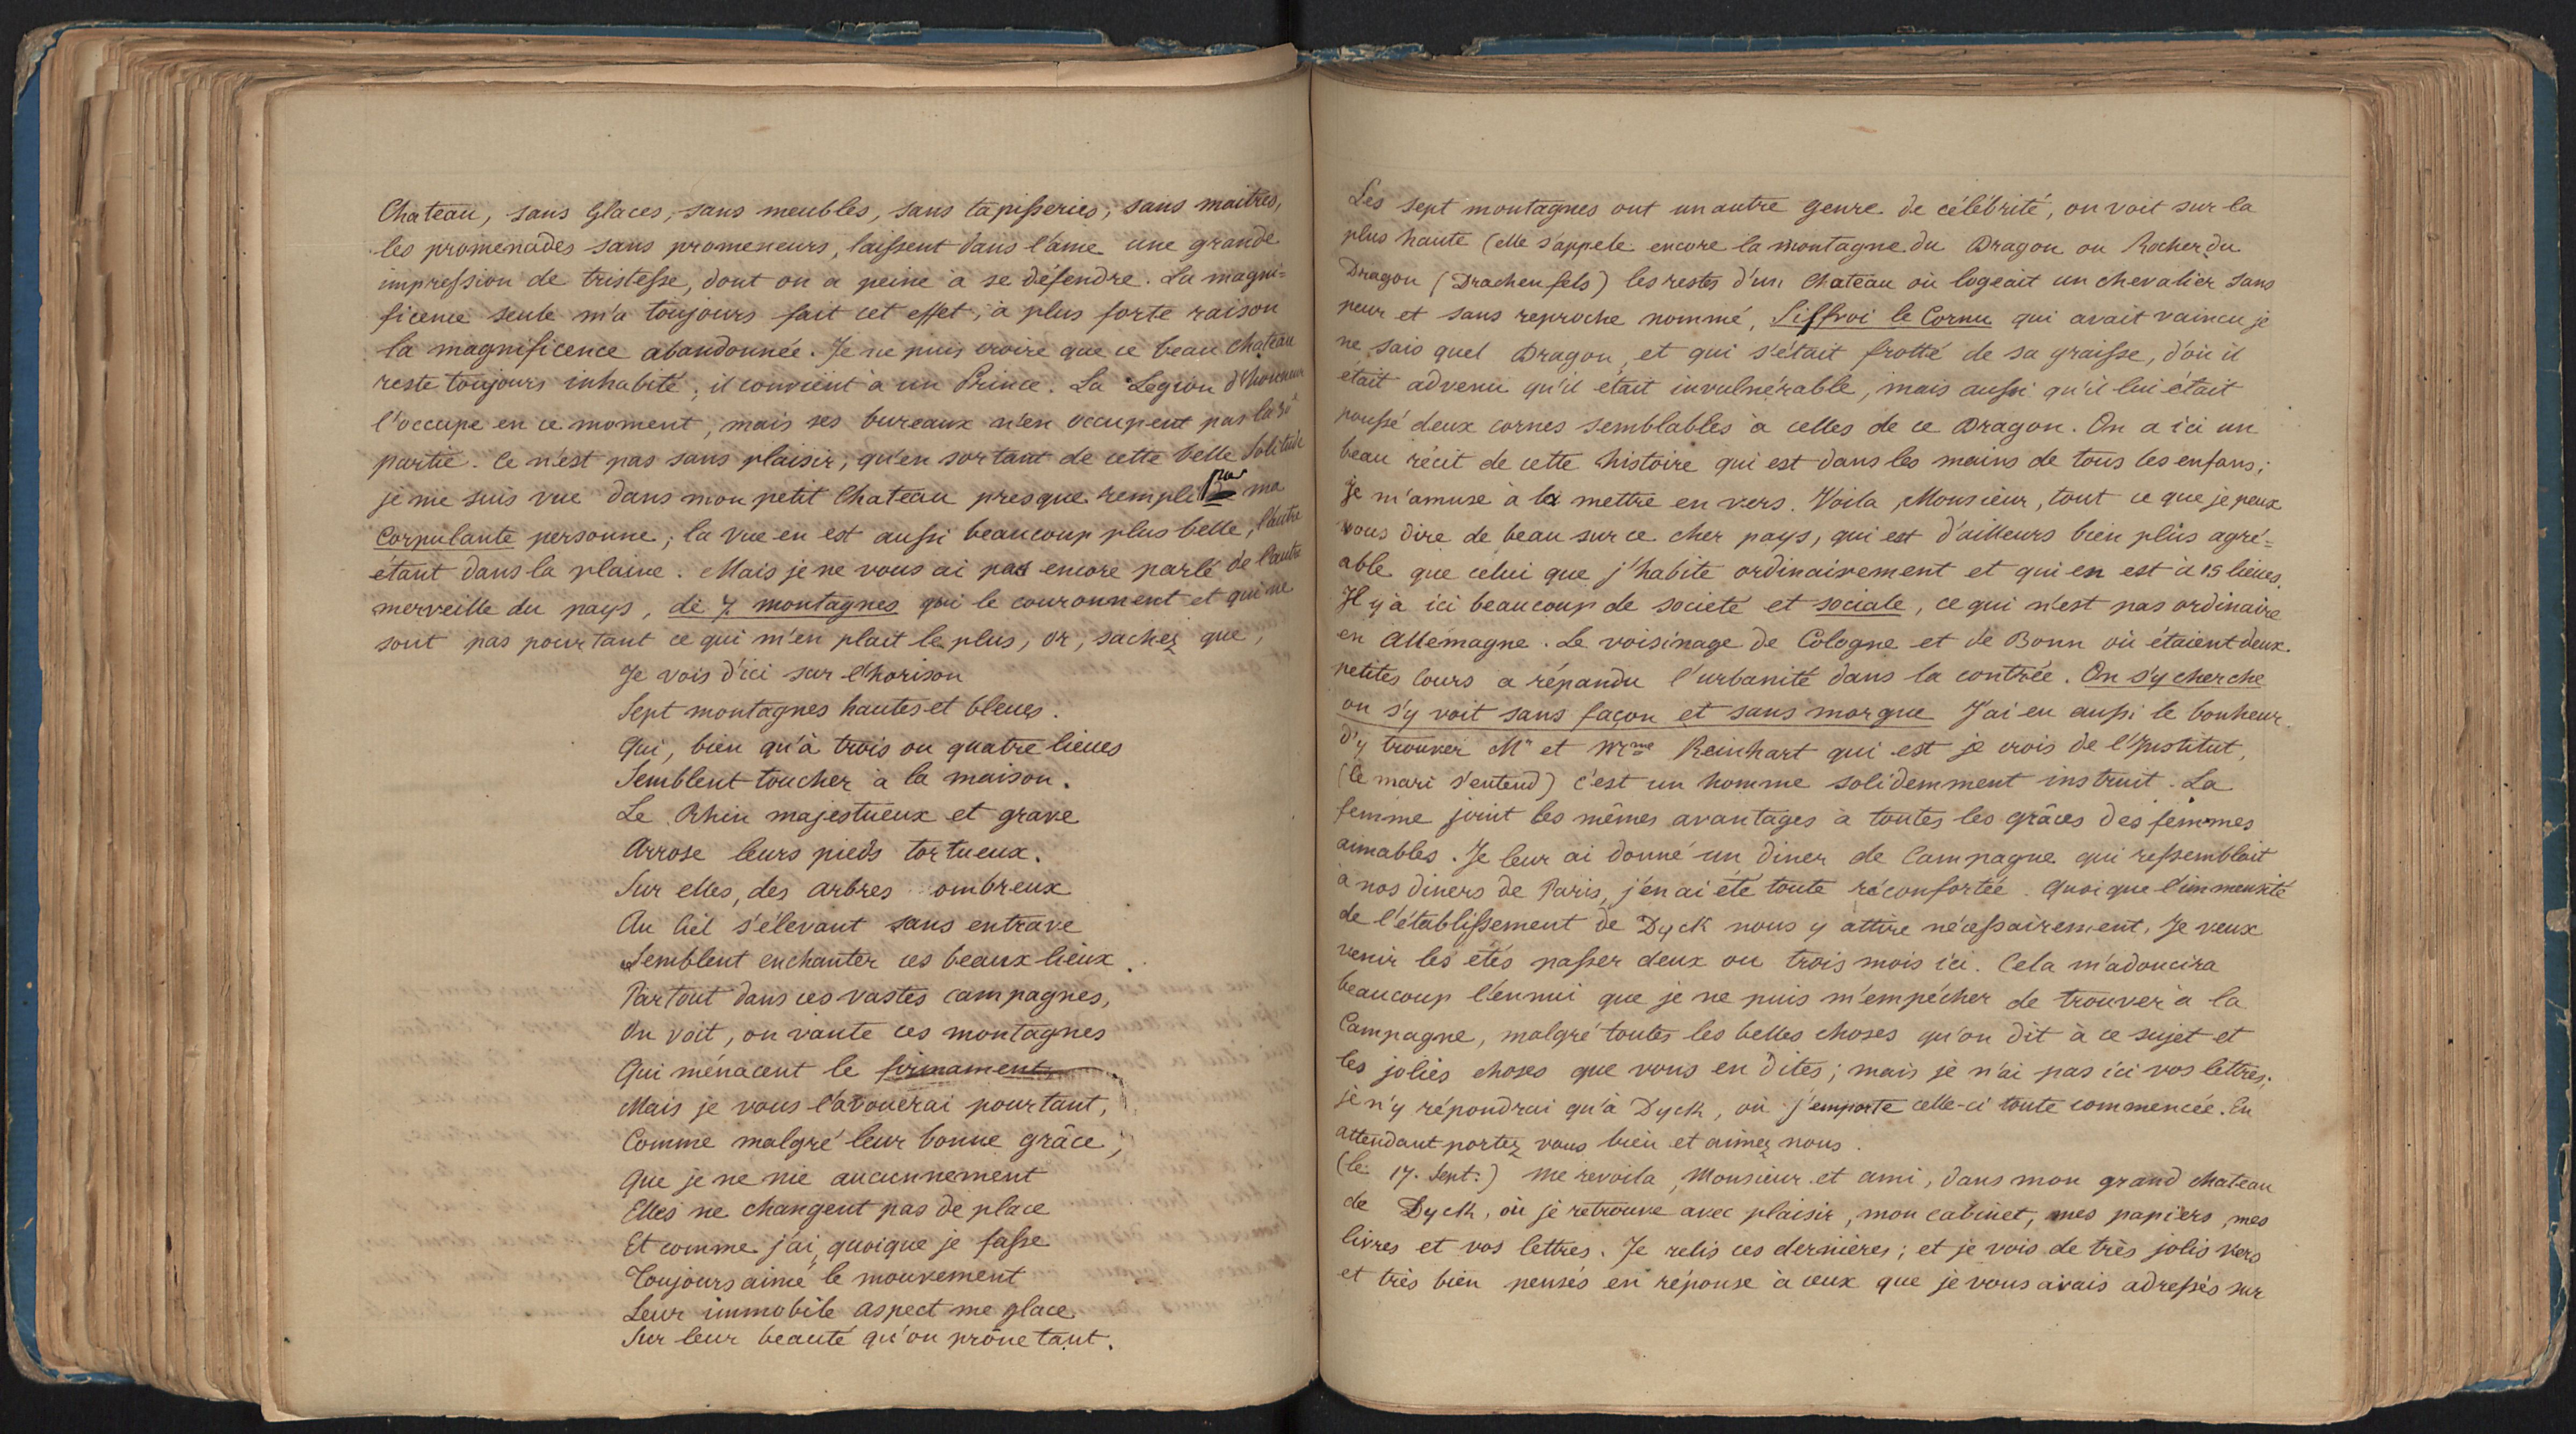 Chateau, sans Glaces, sans meubles, sans tapisseries, sans maitres,
les promenades sans promeneurs, laissent dans l'âme une grande
impression de tristesse, dont on a peine à se défendre. La magni=
ficence seule m'a toujours fait cet effet, à plus forte raison
la magnificence abandonnée. Je ne puis croire que ce beau chateau
reste toujours inhabité; il convient à un Prince. La Légion d'honneur
l'occupe en ce moment, mais ses bureaux n'en occupent pas la 30e
partie. Ce n'est pas sans plaisir, qu'en sortant de cette belle Solitude
je me suis vue dans mon petit Chateau presque rempli par ma
Corpulante personne; la vue en est aussi beaucoup plus belle, l'autre
étant dans la plaine. Mais je ne vous ai pas encore parlé de l'autre
merveille du pays, de 7. montagnes qui le couronnent et qui ne
sont pas pourtant ce qui m'en plait le plus, or, sachez que,
Je vois d'ici sur l'horison
Sept montagnes hautes et bleues.
Qui, bien qu'à trois ou quatre lieues
Semblent toucher à la maison.
Le Rhin majestueux et grave
Arrose leurs pieds tortueux.
Sur elles, des arbres ombreux
Au Ciel s'élevant sans entrave
Semblent enchanter ces beaux lieux.
Partout dans ces vastes campagnes,
On voit, on vante ces montagnes
Qui ménacent le firmament
Mais je vous l'avouerai pourtant,
Comme malgré leur bonne grâce,
Que je ne nie aucunnement
Elles ne changent pas de place
Et comme j'ai, quoique je fasse
Toujours aimé le mouvement
Leur immobile aspect me glace
Sur leur beauté qu'on prône tant.
Les sept montagnes ont un autre genre de célébrité, on voit sur la
plus haute (elle s'appele encore la montagne du Dragon ou Rocher du
Dragon (Drachenfels) les restes d'un Chateau où logeait un chevalier sans
peur et sans reproche nommé, Siffroi le Cornu qui avait vaincu je
ne sais quel Dragon, et qui s'était frotté de sa graisse, d'où il
etait advenu qu'il était invulnérable, mais aussi qu'il lui était
poussé deux cornes semblables à celles de ce Dragon. On a ici un
beau récit de cette histoire qui est dans les mains de tous les enfans;
je m'amuse à la mettre en vers. Voila, Monsieur, tout ce que je peux
vous dire de beau sur ce cher pays, qui est d'ailleurs bien plus agré=
able que celui que j'habite ordinairement et qui en est à 15 lieues.
Il y a ici beaucoup de societé et sociale, ce qui n'est pas ordinaire
en Allemagne. Le voisinage de Cologne et de Bonn où étaient deux
petites Cours a répandu l'urbanité dans la contrée. On s'y cherche
on s'y voit sans façon et sans morgue J'ai eu aussi le bonheur
d'y trouver Mr et Mme Reinhart qui est je crois de l'Institut,
(le mari s'entend) c'est un homme solidemment instruit. La
femme joint les mêmes avantages à toutes les grâces des femmes
aimables. Je leur ai donné un diner de Campagne qui ressemblait
à nos diners de Paris, j'en ai été toute réconfortée. Quoique l'immensité
de l'établissement de Dyck nous y attire nécessairement, Je veux
venir les étés passer deux ou trois mois ici. Cela m'adoucira
beaucoup l'ennui que je ne puis m'empécher de trouver à la
Campagne, malgré toutes les belles choses qu'on dit à ce sujet et
les jolies choses que vous en dites; mais je n'ai pas ici vos lettres.
je n'y répondrai qu'à Dyck, où j'emporte celle-ci toute commencée. En
attendant portez vous bien et aimez nous.
(le 17. Sept:) me revoila, Monsieur et ami, dans mon grand chateau
de Dyck, où je retrouve avec plaisir, mon cabinet, mes papiers, mes
livres et vos lettres. Je relis ces dernières; et je vois de très jolis vers
et très bien pensés en réponse à ceux que je vous avais adressés sur